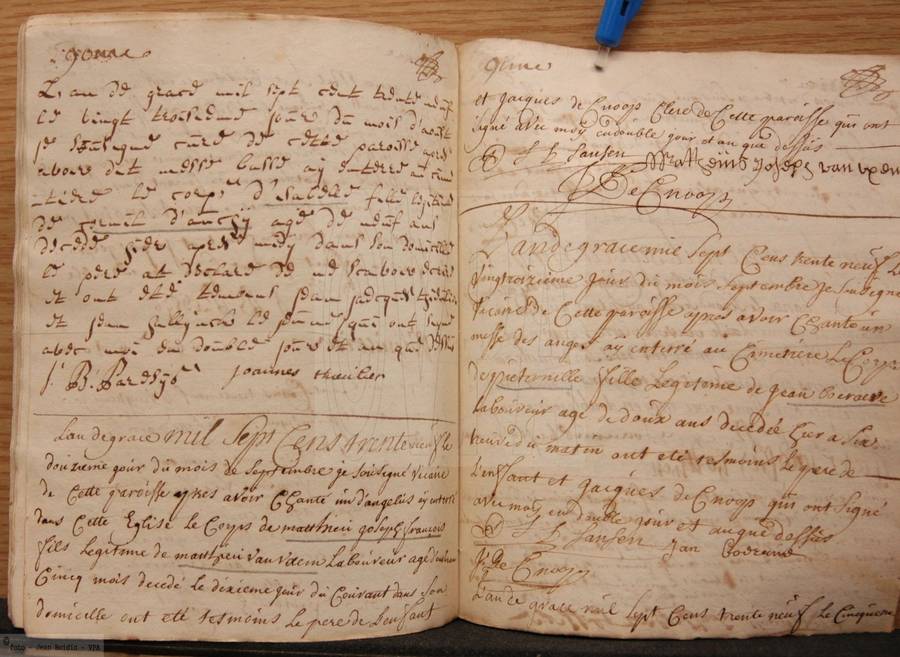 L'an de grace mil sept cent trente neuf
le vingt troisieme jour du mois d'aoust
je soussigné curé de cette paroisse apres
avoir dit messe basse ay enterré au cime
-tiere le corps d'Isabelle fille legitime
de agé de neuf ans
decedé hier apres midy dans son domicile
le pere at declaré de ne scavoir ecrire
et ont eté temoins jean jacques
et jean le jeune qui ont signé
avec moi en double jour et an que dessus
joannes
L'an de grace mil Sept Cens trente neuf le
douzieme jour du mois de Septembre je Sousigné Vicaire
de Cette paroisse apres avoir Chanté un d'angelus ay enterré
dans Cette Eglise le Corps de mattheii joseph françois
fils legitime de mattheii van uxem Laboureur agé d'
Cinq mois decedé le dixieme jour du Courant dans son
domicille ont eté tesmoins le pere de L'enfant
et jacques de Cnoop Clerc de Cette paroisse qui ont
signé avec moy endouble jour et an que dessus
Jansen Mattheius Joseph van uxem
De Cnoop
L'an de grace mil Sept Cens trente neuf Le
Vingtroizieme jour du mois Septembre je Sousigné
Vicaire de Cette paroisse apres avoir Chanté un
messe des anges ay enterré au Cimetiere Le Corps
de pieternille fille Legitime de jean
Laboureur agé de doux ans decedé hier a six
heure du matin ont eté tesmoins Le pere de
L'enfaut et jacques de Cnoop qui ont Signé
avec moy endouble jour et anque dessus
Jansen Jan
De Cnoop
L'an de grace mil sept Cens trente neuf Le Cinquieme
© foto - Jean Heidin - VPA